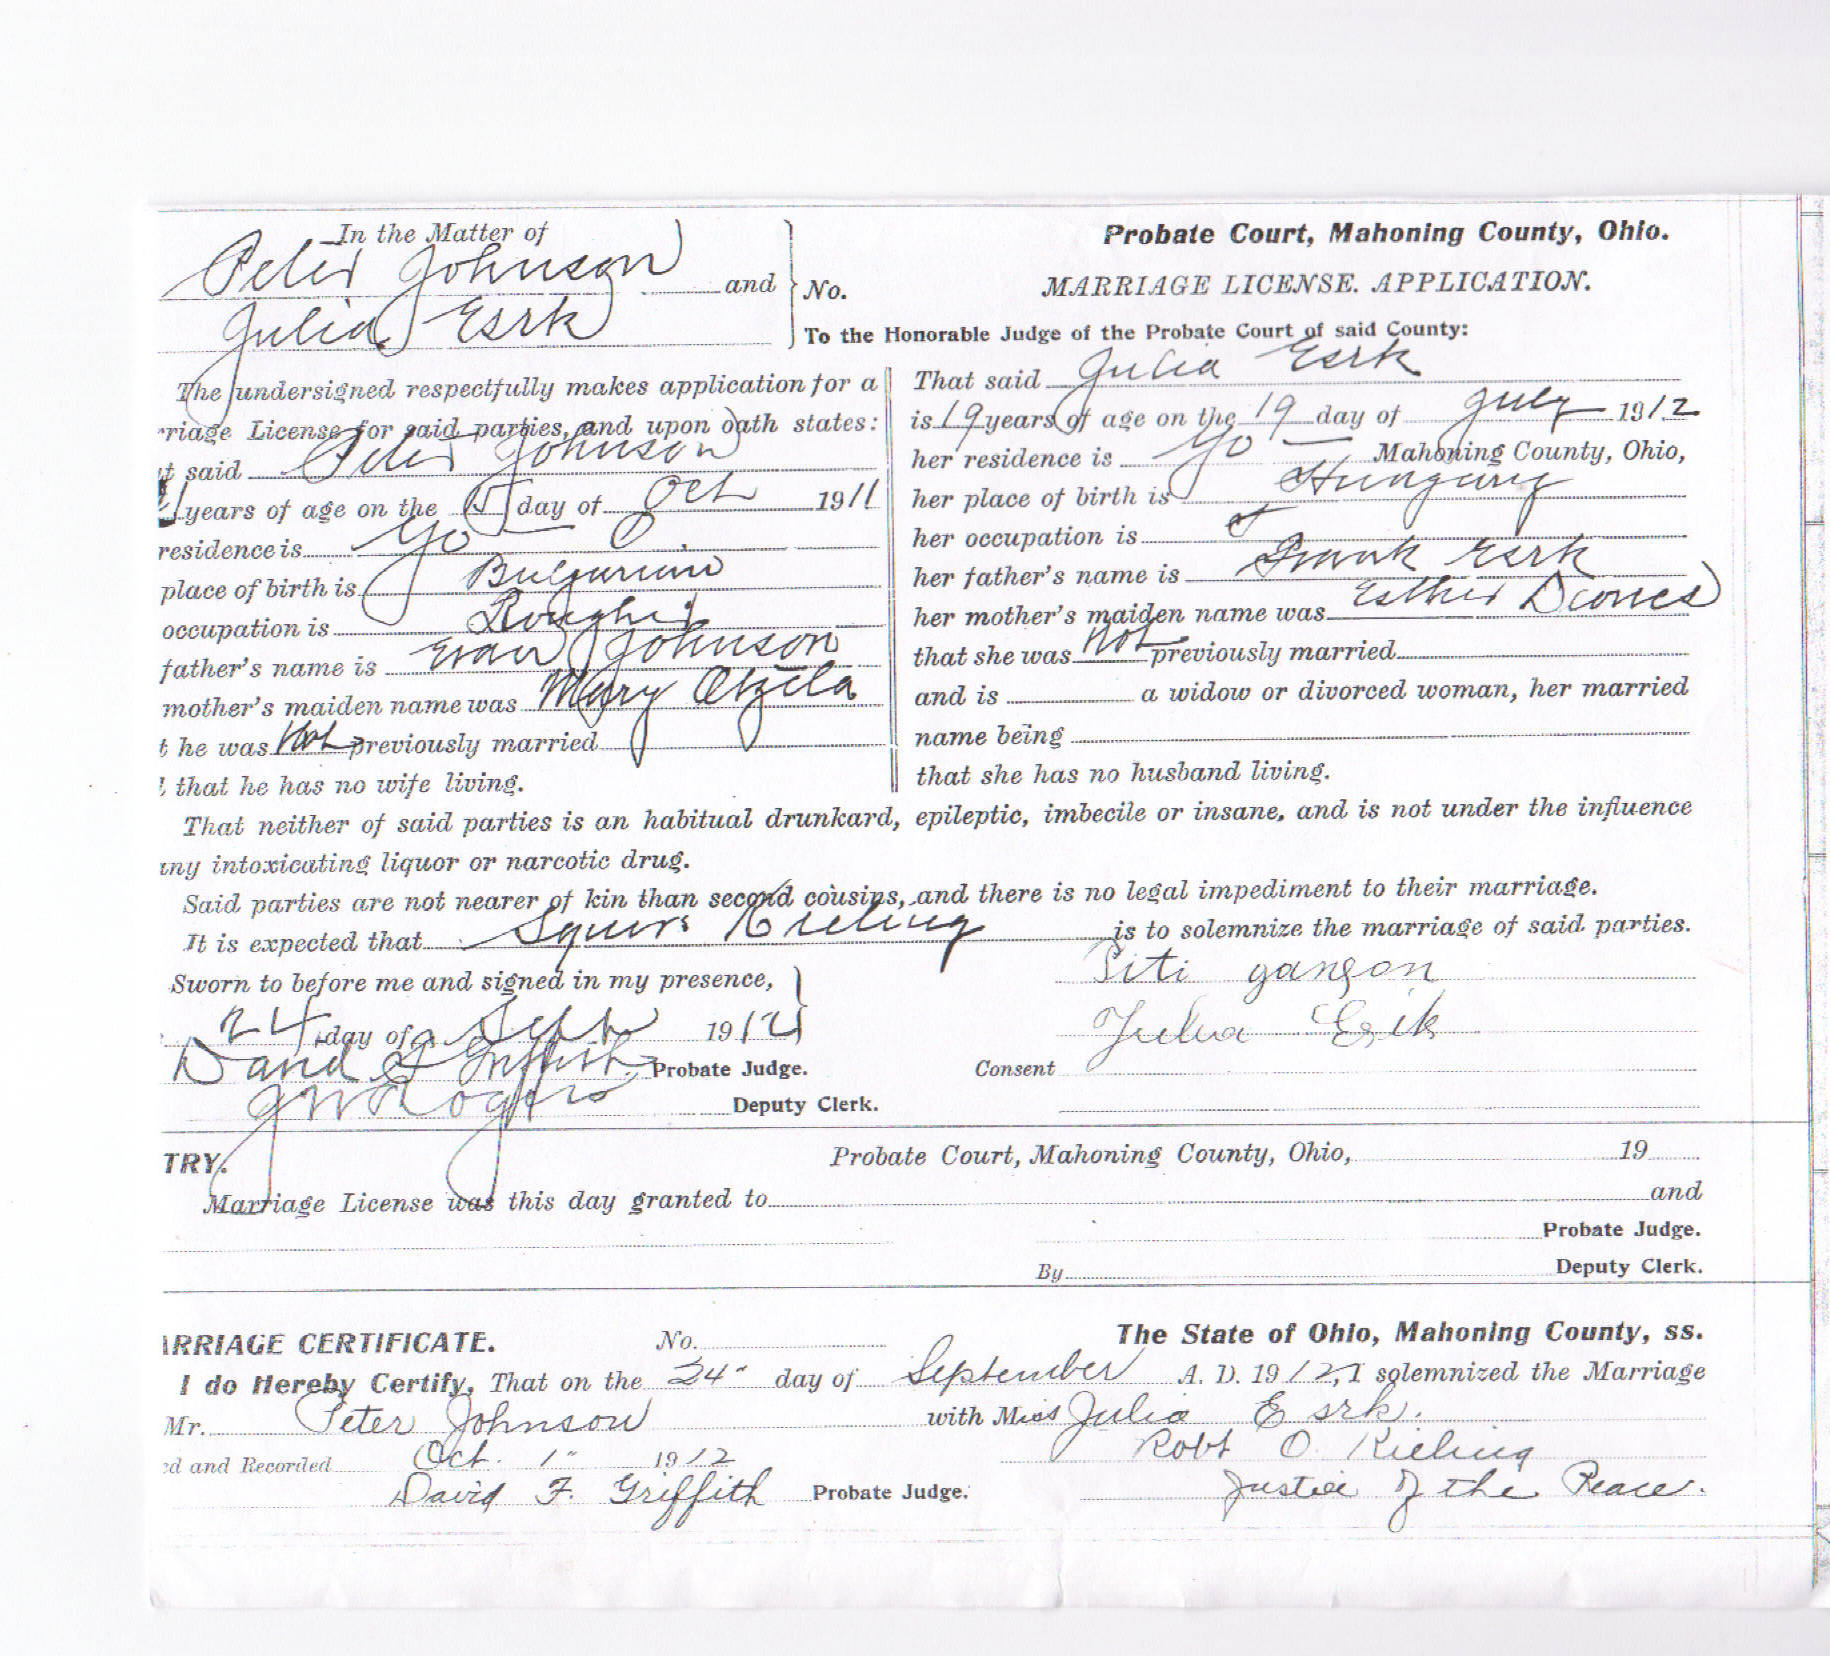 In the Matter of
Peter Johnson and
Julia Esrk
No.
Probate Court, Mahoning County, Ohio.
MARRIAGE LICENSE. APPLICATION.
To the Honorable Judge of the Probate Court of said County:
The undersigned respectfully makes application for a
rriage License for said parties, and upon oath states:
t said Peter Johnson
years of age on the 15 day of Oct 1911
residence is Yo
place of birth is
occupation is Rougher
father's name is Evan Johnson
mother's maiden name was Mary
t he was Not previously married
l that he has no wife living.
That said Julia Esrk
is 19 years of age on the 19 day of July 1912
her residence is Yo Mahoning County, Ohio,
her place of birth is Hungary
her occupation is
her father's name is Frank Esrk
her mother's maiden name was Esther
that she was Not previously married
and is a widow or divorced woman, her married
name being
that she has no husband living.
That neither of said parties is an habitual drunkard, epileptic, imbecile or insane, and is not under the influence
any intoxicating liquor or narcotic drug.
Said parties are not nearer of kin than second cousins, and there is no legal impediment to their marriage.
It is expected that Squire Kieling is to solemnize the marriage of said parties.
Sworn to before me and signed in my presence,
24 day of Sept 1912
David F Griffith Probate Judge.
J W Rogers Deputy Clerk.
Piti
Julia Esik
Consent
TRY.
Probate Court, Mahoning County, Ohio, 19
Marriage License was this day granted to and
Probate Judge.
By Deputy Clerk.
ARRIAGE CERTIFICATE.
No.
The State of Ohio, Mahoning County, ss.
I do Hereby Certify, That on the 24" day of September A. D. 1912, I solemnized the Marriage
Mr. Peter Johnson with Miss Julia Esrk.
Robt O. Kieling
ed and Recorded Oct. 1" 1912
David F. Griffith Probate Judge.
Justice of the Peace.